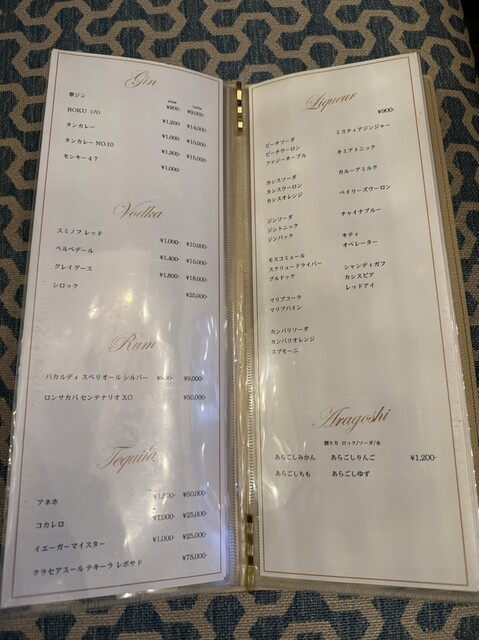 Gin
翠ジン ¥900- ¥9,000-
ROKU（六） ¥1,200- ¥14,000-
タンカレー ¥1,000- ¥10,000-
タンカレー NO.10 ¥1,300- ¥15,000-
モンキー４７ ¥1,000-
Vodka
スミノフ レッド ¥1,000- ¥10,000-
ベルベデール ¥1,400- ¥15,000-
グレイグース ¥1,800- ¥18,000-
シロック ¥25,000-
Rum
バカルディ スペリオール シルバー ¥9,000-
ロンサカパ センテナリオ XO ¥50,000-
Tequila
アネホ ¥50,000-
コカレロ ¥1,000- ¥25,000-
イエーガーマイスター ¥1,000- ¥25,000-
クラセアスール テキーラ レポサド ¥75,000-
Liqueur
¥900-
ピーチソーダ
ピーチウーロン
ファジーネーブル
カシスソーダ
カシスウーロン
カシスオレンジ
ジンソーダ
ジントニック
ジンバック
モスコミュール
スクリュードライバー
ブルドック
マリブコーラ
マリブパイン
カンパリソーダ
カンパリオレンジ
スプモーニ
ミスティアジンジャー
キミアトニック
カルーアミルク
ベイリーズウーロン
チャイナブルー
キティ
オペレーター
シャンディガフ
カシスビア
レッドアイ
Aragoshi
割り方 ロック/ソーダ/水
あらごしみかん あらごしりんご ¥1,200-
あらごしもも あらごしゆず